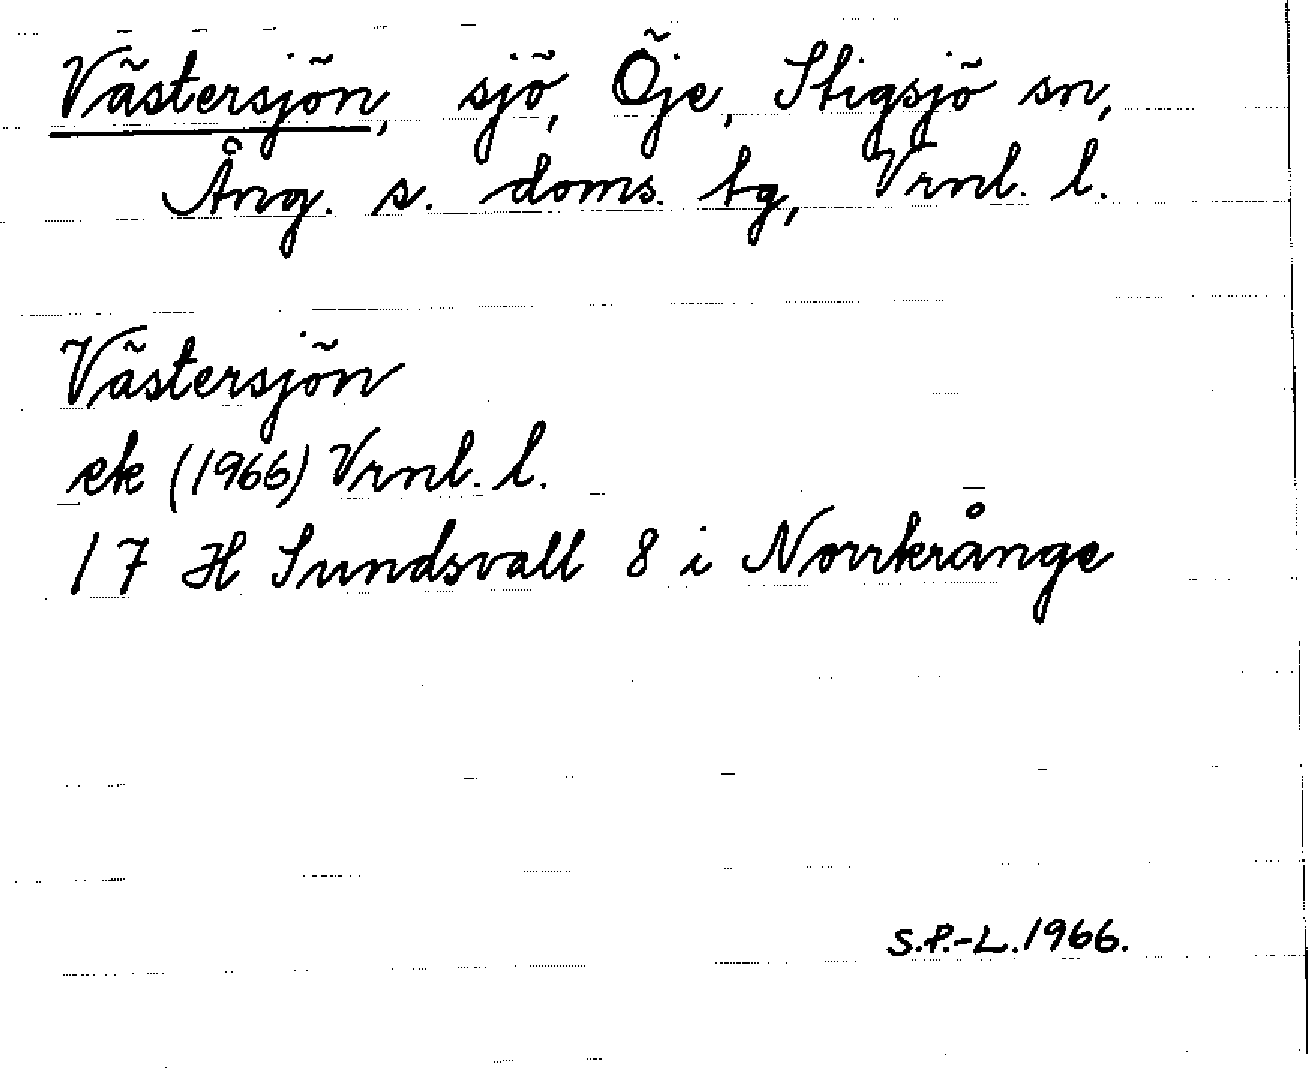 Västersjön, sjö, Öje, Stigsjö sn,
Ång. s. doms. tg, Vrnl. l.
Västersjön
ek (1966) Vrnl. l.
17 H Sundsvall 8 i Norrkrånge
S.P.-L. 1966.